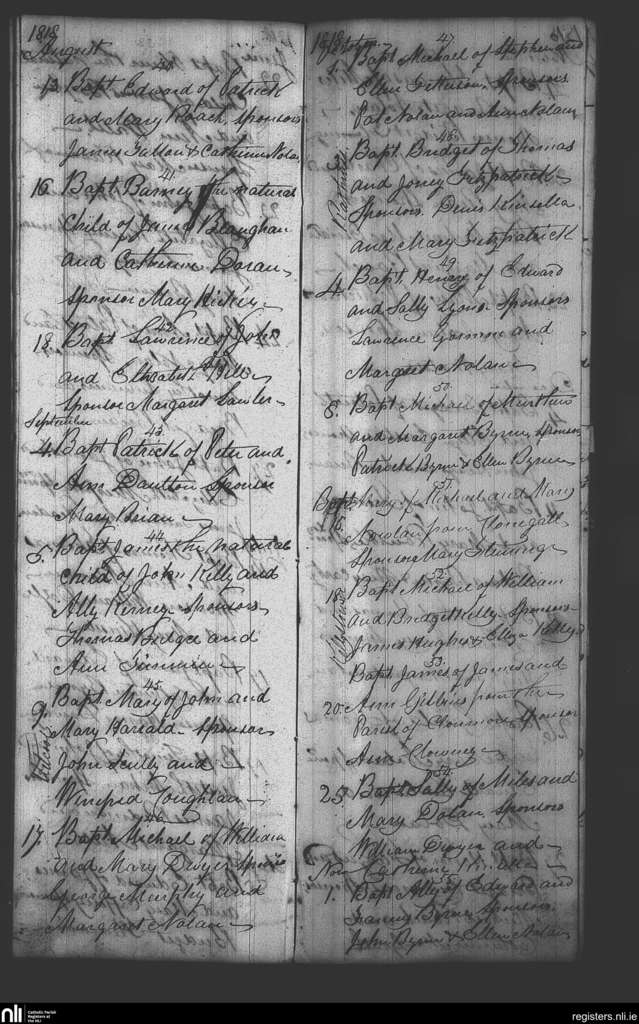 1818
August
40
13 Bapt. Edward of Patrick
and Mary Roach, sponsors
James Fallon & Catherine Nolan
41
16 Bapt. Barney the natural
Child of James
and Catherine Doran,
sponsor Mary Hickey
42
18. Bapt Lawrence of John
and Elizabeth
Sponsor Margaret Lawler
September
43
4. Bapt Patrick of Peter and
Ann Dalton Sponsor
Mary Brian
44
5. Bapt James the natural
Child of John Kelly and
Ally Kenny Sponsors
Thomas and
Ann
45
9. Bapt Mary of John and
Mary sponsors
John Scully and
Winefred Coughlan
46
17. Bapt Michael of William
and Mary Dwyer
George Murphy and
Margaret Nolan
1818 October
47
Bapt Michael of Stephen and
Ellen Sponsors
Pat Nolan and Ann Nolan
48
Bapt Bridget of Thomas
and Joney Fitzpatrick
Sponsors. Denis Kinsella
and Mary Fitzpatrick
49
4. Bapt Henry of Edward
and Sally Lyons Sponsors
Lawrence and
Margaret Nolan
50
8. Bapt Michael of
and Margaret Byrne, sponsors
Patrick Byrne & Ellen Byrne
51
Bapt of Michael and Mary
Nowlan from
Sponsor Mary
52
18 Bapt Michael of William
and Bridget Kelly Sponsors
James Hughes & Eliza Kelly
53
Bapt James of James and
20. Ann from the
Parish of Clonmore, sponsor
Ann Clowney
54
25 Bapt Sally of Miles and
Mary Dolan, sponsors
William Dwyer and
Catherine
Nov
55
1. Bapt Ally of Edward and
Fanny Byrne Sponsors
John Byrne & Ellen Nolan
nli
Catholic Parish
Registers at
the NLI
registers.nli.ie